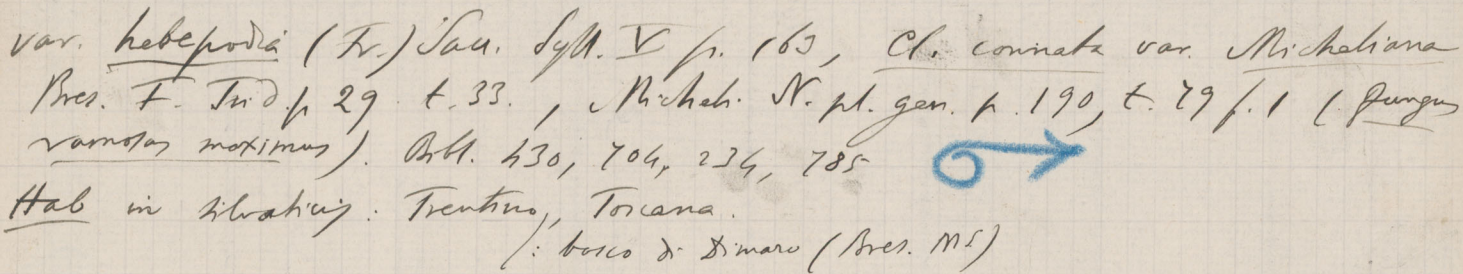 var. hebepodia (Fr.) Sacc. Syll. V p. 163, Cl. connata var. Micheliana
Bres. F. Trid. p 29 t. 33., Micheli N. pl. gen. p. 190, t. 79 f. 1 (Fungus
ramosus maximus). Bibl. 430, 704, 234, 785
Hab in silvaticis: Trentino, Toscana.
: bosco di Dimaro (Bres. MS)